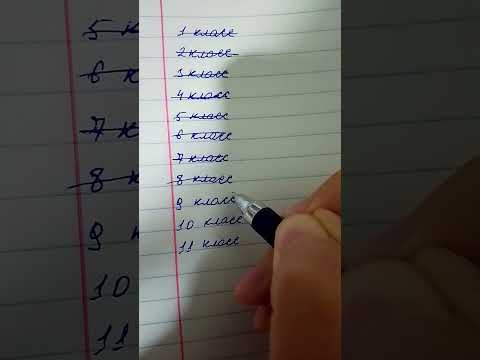 1 класс
2 класс
3 класс
4 класс
5 класс
6 класс
7 класс
8 класс
9 класс
10 класс
11 класс